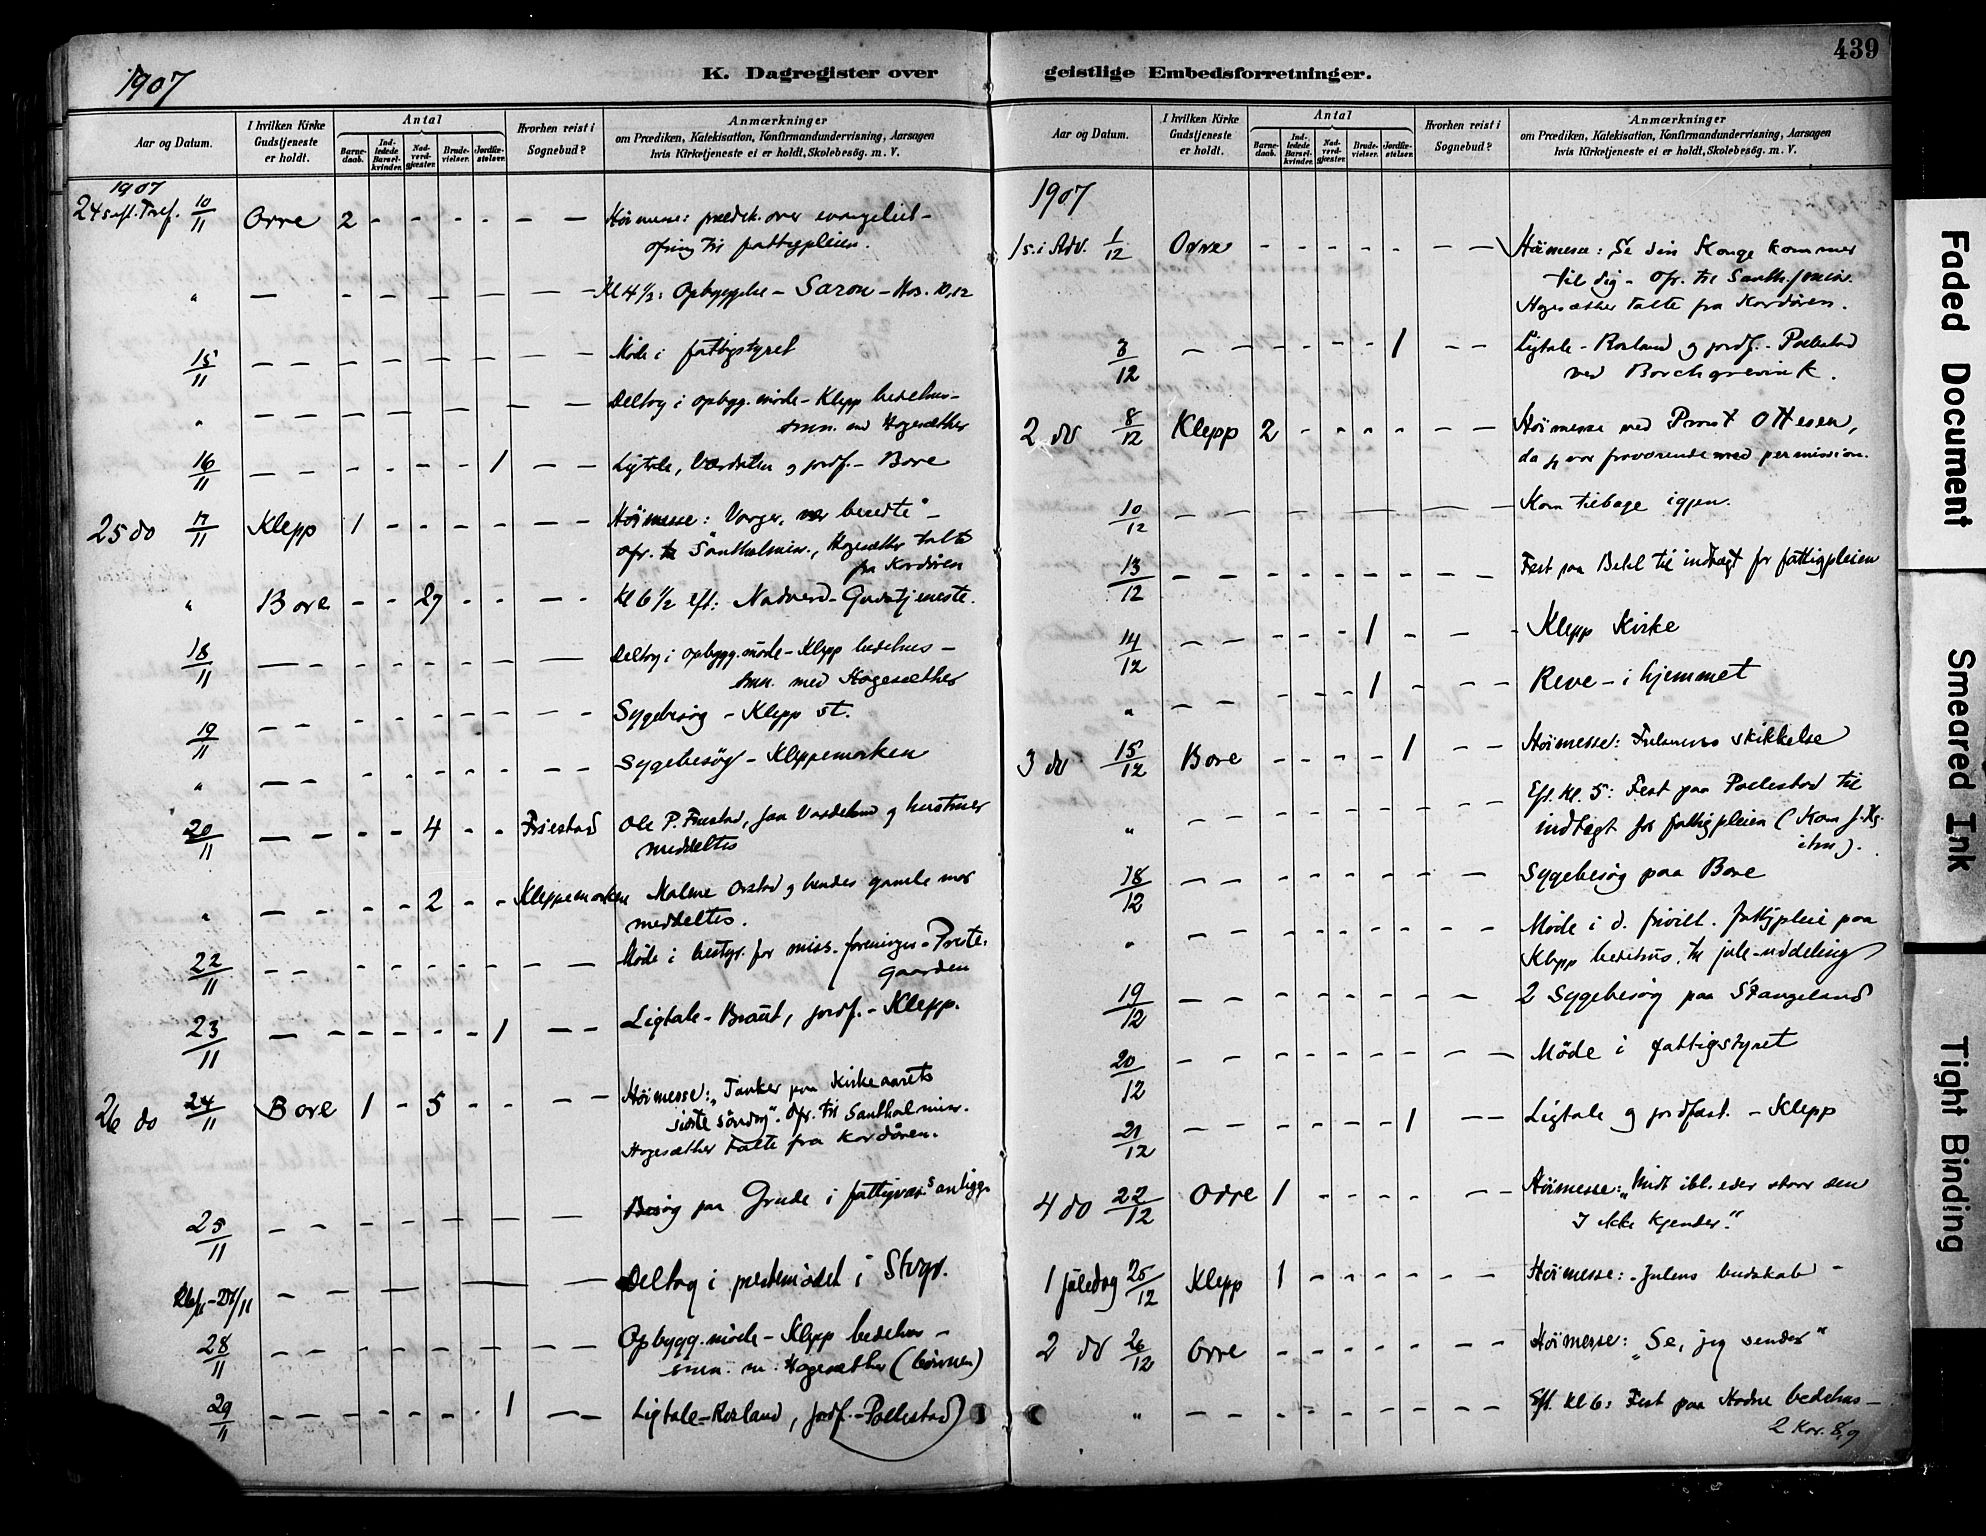 1907
K. Dagregister over
Aar og Datum.
I hvilken Kirke Gudstjeneste er holdt.
Antal
Barne-daab.
Ind-ledede Barsel-kvinder.
Nad-verd-gjester.
Brude-vielser.
Jordfæ-stelser.
Hvorhen reist i Sognebud?
Anmærkninger
om Prædiken, Katekisation, Konfirmandundervisning, Aarsagen
hvis Kirketjeneste ei er holdt, Skolebesög. m. V.
1907
24 s. eft. Tref. 10/11 Orre 2 - - - - - - Höimesse: prædik. over evangeliet -
ofring til fattigpleien.
" - - - - - - - - Kl 4 1/2: Opbyggelse - Saron - Hos. 10,12
15/11 - - - - - - - - Möde i fattigstyret
" - - - - - - - - Deltog i opbygg. möde - Klepp bedehus -
smn. med Hogesæther
16/11 - - - - - - 1 - - Ligtale, og jordf. - Bore
25 do 17/11 Klepp 1 - - - - - - Höimesse: Vorger, beredte" -
ofr. til Santhalmis., Hogesæther talte
fra Kordören
" Bore - - 27 - - - - Kl 6 1/2 eft: Nadverd-Gudstjeneste.
18/11 - - - - - - - - Deltog i opbygg. möde - Klepp bedehus -
smn. med Hogesæther
19/11 - - - - - - - - Sygebesög - Klepp st.
" - - - - - - - - Sygebesög - Kleppemarken
20/11 - - - - 4 - - Friestad Ole P. Friestad, og hustruer
meddeltes
" - - - - 2 - - Kleppemarken Malene Orstad og hendes gamle mor
meddeltes.
22/11 - - - - - - - - Möde i bestyr. for miss. foreninger - Preste-
gaarden
23/11 - - - - - - 1 - - Ligtale - Braut, jordf. - Klepp.
26 do 24/11 Bore 1 - 5 - - - - Höimesse: "Tanker paa Kirkeaarets
sidste söndag". Ofr. til Santhalmiss.
Hogesæther talte fra Kordören.
25/11 - - - - - - - - Besög paa Grude i fattigvæs.s anligg.
- - - - Deltog i prestemödet i Stvgr.
28/11 - - - - - - - - Opbygg. möde - Klepp bedehus -
smn. m. Hogesæther
29/11 - - - - - - 1 - - Ligtale - Rosland, jordf. - Pollestad
439
geistlige Embedsforretninger.
Aar og Datum.
I hvilken Kirke Gudstjeneste er holdt.
Antal
Barne-daab.
Ind-ledede Barsel-kvinder.
Nad-verd-gjester.
Brude-vielser.
Jordfæ-stelser.
Hvorhen reist i Sognebud?
Anmærkninger
om Prædiken, Katekisation, Konfirmandundervisning, Aarsagen
hvis Kirketjeneste ei er holdt, Skolebesög. m. V.
1907
1 s. i Adv. 1/12 Orre - - - - - - - Höimesse: Se din Konge kommer
til dig - ofr. til Santh.miss.
Hogesæther talte fra Kordören.
3/12 - - - - - - 1 - - Ligtale - Rosland og jordf. - Pollestad
ved Borchgrevink.
2 do 8/12 Klepp 2 - - - - - - Höimesse ved Provst Ottesen,
da jeg var fraværende med permission.
10/12 - - - - - - - - Kom tilbage igjen.
13/12 - - - - - - - - Fest paa Betel til indtægt for fattigpleien
14/12 - - - - - 1 - - - Klepp Kirke
" - - - - - 1 - - - Reve - i hjemmet
3 do 15/12 Bore - - - - 1 - - Höimesse: Frelserens skikkelse
" - - - - - - - - Eft. Kl. 5: Fest paa Pollestad til
indtægt for fattigpleien
18/12 - - - - - - - - Sygebesög paa Bore
" - - - - - - - - Möde i d. frivill. fattigpleie paa
Klepp bedehus, til jule-uddeling
19/12 - - - - - - - - 2 sygebesög paa Stangeland
20/12 - - - - - - - - Möde i fattigstyret
21/12 - - - - - - 1 - - Ligtale og jordfæst. - Klepp
4 do 22/12 Orre 1 - - - - - - Höimesse: "Midt ibl. eder staar den
I ikke kjender."
1 juledag 25/12 Klepp 1 - - - - - - Höimesse: Julens budskab -
2 do 26/12 Orre - - - - - - - Höimesse: "Se, jeg sender"
" - - - - - - - - Eft. Kl 6: Fest paa Hodne bedehus -
2 Kor. 8,9
Faded Document
Smeared Ink
Tight Binding